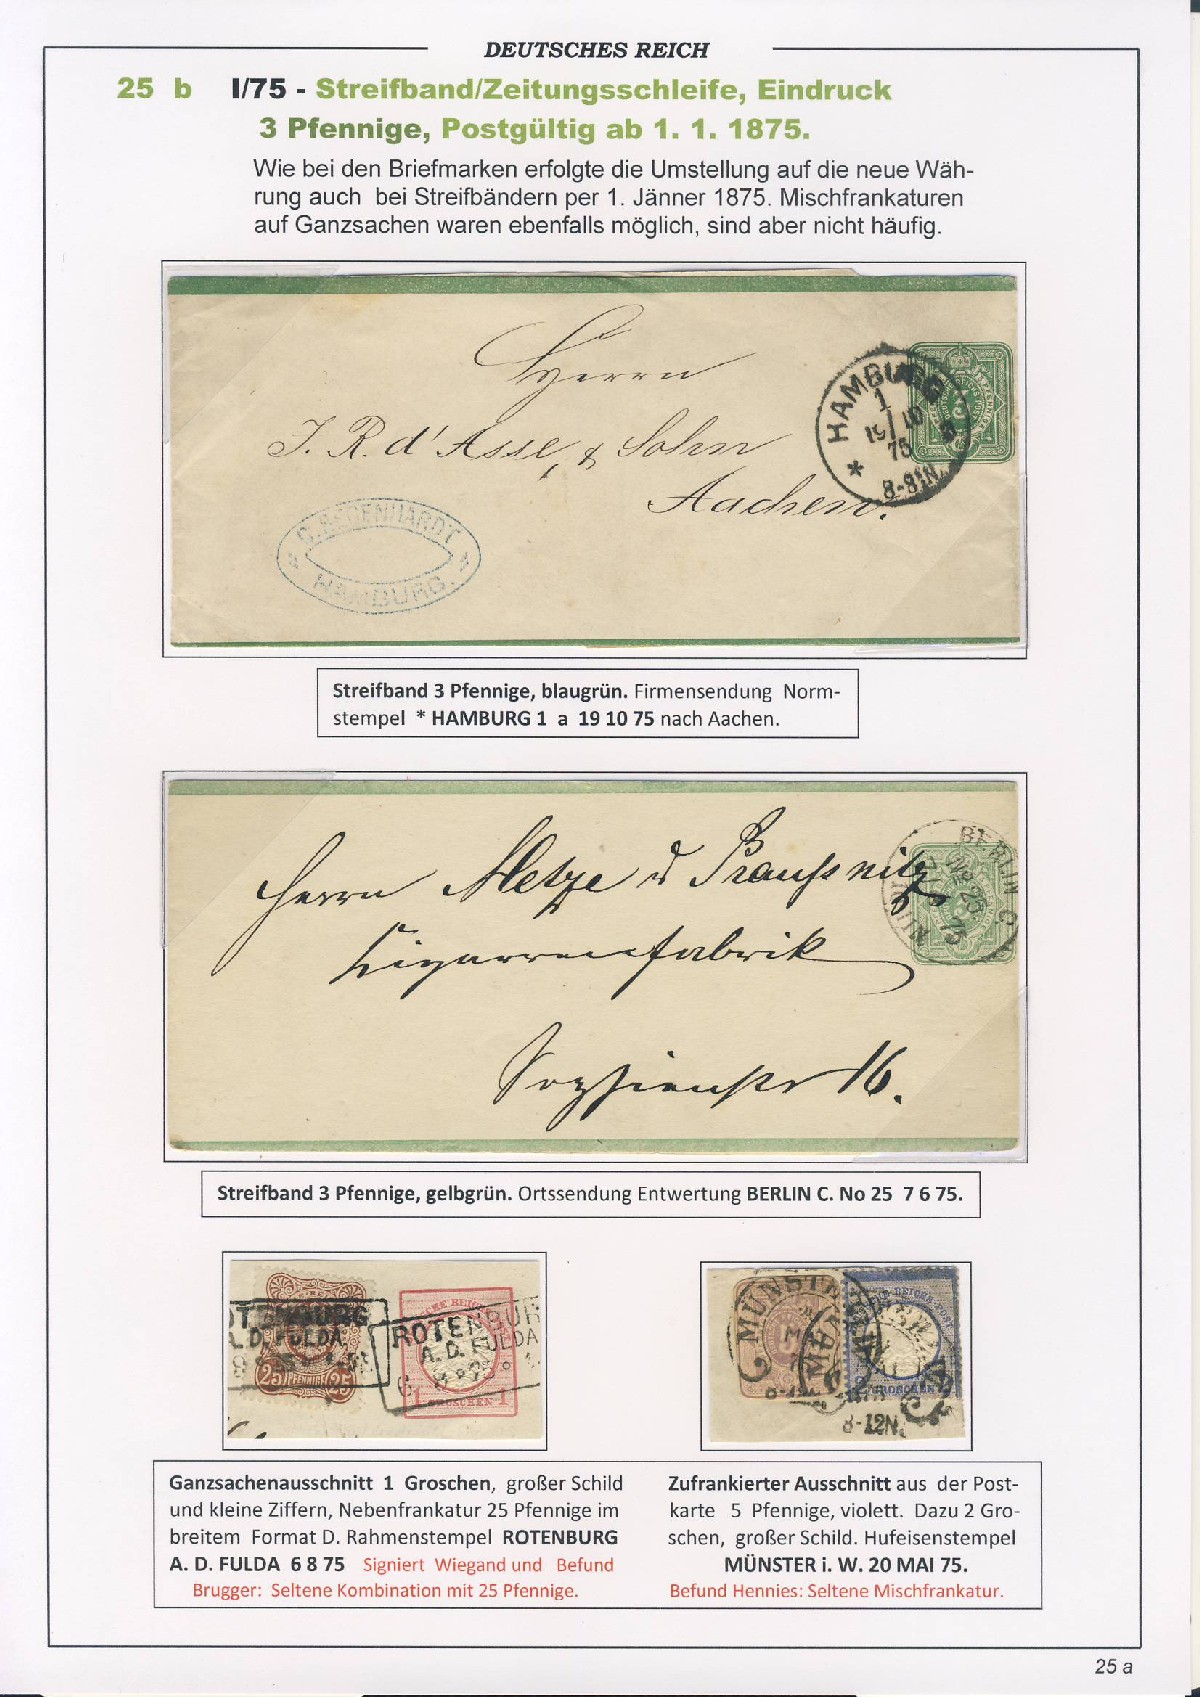 DEUTSCHES REICH
25 b I/75 - Streifband/Zeitungsschleife, Eindruck
3 Pfennige, Postgültig ab 1. 1. 1875.
Wie bei den Briefmarken erfolgte die Umstellung auf die neue Wäh-
rung auch bei Streifbändern per 1. Jänner 1875. Mischfrankaturen
auf Ganzsachen waren ebenfalls möglich, sind aber nicht häufig.
Herrn
J. R. d'Asse & Sohn
Aachen.
HAMBURG
1
19 10
75
8-9 N.
*
HAMBURG.
Streifband 3 Pfennige, blaugrün. Firmensendung Norm-
stempel * HAMBURG 1 a 19 10 75 nach Aachen.
BERLIN C.
No 25
75
Herrn Metze
Cigarrenfabrik
16.
Streifband 3 Pfennige, gelbgrün. Ortssendung Entwertung BERLIN C. No 25 7 6 75.
OTENBURG
A. D. FULDA
25 PFENNIGE 25
ROTENBUR
A. D. FULDA
1 GROSCHEN 1
MÜNSTE
2 GROSCHEN
8-12N.
Ganzsachenausschnitt 1 Groschen, großer Schild
und kleine Ziffern, Nebenfrankatur 25 Pfennige im
breitem Format D. Rahmenstempel ROTENBURG
A. D. FULDA 6 8 75 Signiert Wiegand und Befund
Brugger: Seltene Kombination mit 25 Pfennige.
Zufrankierter Ausschnitt aus der Post-
karte 5 Pfennige, violett. Dazu 2 Gro-
schen, großer Schild. Hufeisenstempel
MÜNSTER i. W. 20 MAI 75.
Befund Hennies: Seltene Mischfrankatur.
25 a